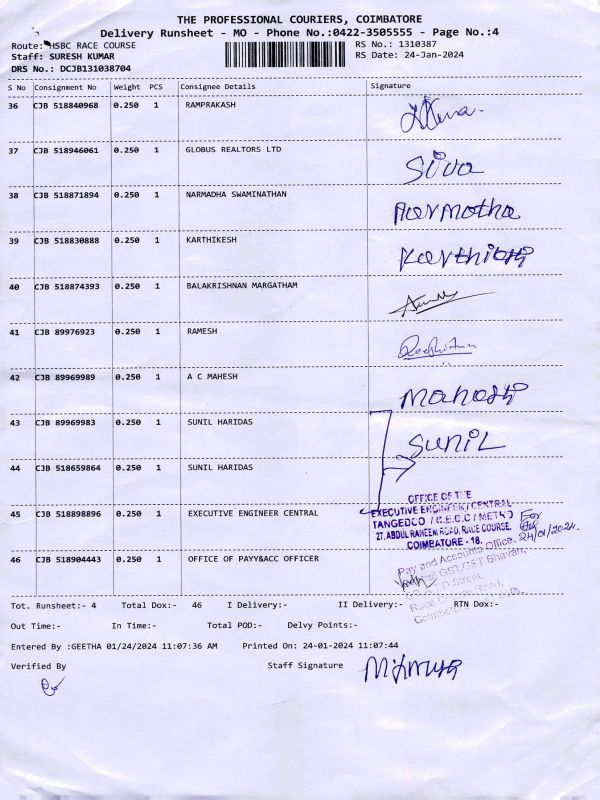 THE PROFESSIONAL COURIERS, COIMBATORE
Delivery Runsheet - MO - Phone No.:0422-3505555 - Page No.:4
Route: HSBC RACE COURSE RS No.: 1310387
Staff: SURESH KUMAR RS Date: 24-Jan-2024
DRS No.: DCJB131038704
S No Consignment No Weight PCS Consignee Details Signature
36 CJB 518840968 0.250 1 RAMPRAKASH
37 CJB 518946061 0.250 1 GLOBUS REALTORS LTD Siva
38 CJB 518871894 0.250 1 NARMADHA SWAMINATHAN Narmatha
39 CJB 518830888 0.250 1 KARTHIKESH
40 CJB 518874393 0.250 1 BALAKRISHNAN MARGATHAM
41 CJB 89976923 0.250 1 RAMESH
42 CJB 89969989 0.250 1 A C MAHESH
43 CJB 89969983 0.250 1 SUNIL HARIDAS SUNIL
44 CJB 518659864 0.250 1 SUNIL HARIDAS
OFFICE OF THE
45 CJB 518898896 0.250 1 EXECUTIVE ENGINEER CENTRAL EXECUTIVE ENGINEER/CENTRAL
TANGEDCO / C.E.D.C / METRO For
27, ABDUL RAHEEM ROAD, RACE COURSE,
COIMBATORE - 18. 24/01/2024.
46 CJB 518904443 0.250 1 OFFICE OF PAYY&ACC OFFICER Pay and Accounts Office,
Central GST, GST Bhavan,
Race Course Road,
Tot. Runsheet:- 4 Total Dox:- 46 I Delivery:- II Delivery:- RTN Dox:-
Out Time:- In Time:- Total POD:- Delvy Points:-
Entered By :GEETHA 01/24/2024 11:07:36 AM Printed On: 24-01-2024 11:07:44
Verified By Staff Signature